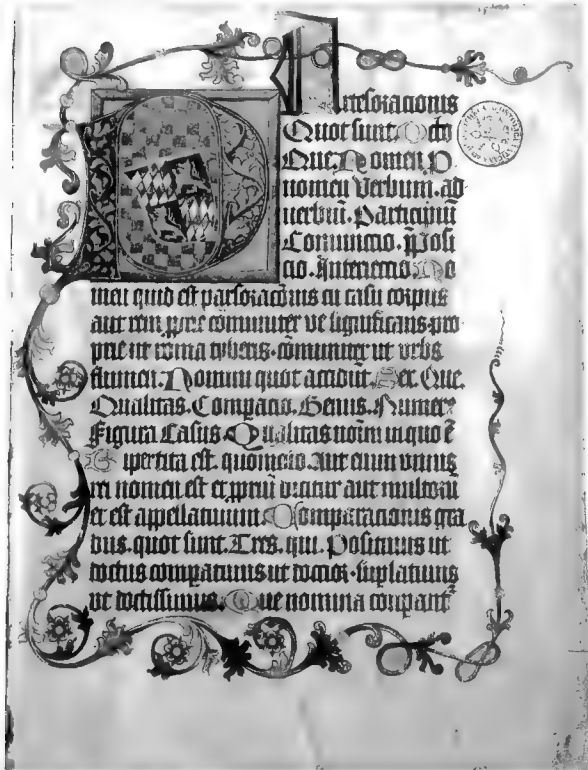 Partes oracionis
Quot sunt. Octo
Que. Nomen. P
nomen Verbum. ad
uerbiū. Participiū
Coniunctio. p̄posi
cio. Interiectio. No
men quid est pars oracōnis cū casu corpus
aut rem pprie comuniter ve significans. pro
prie ut roma tyberis. cōmuniter ut vrbs
flumen. Nomini quot accidūt. Sex. Que.
Qualitas. Compacio. Genus. Numerꝰ
Figura Casus. Qualitas noīm in quo ē
Bipertita est. quomodo. Aut enim vnius
rei nomen est et propriū dicitur aut multorū
et est appellatiuum. Comparacionis gra
dus. quot sunt. Tres. qui. Positiuus ut
doctus comparatiuus ut doctior. suplatiuus
ut doctissimus. Que nomina conpant̄